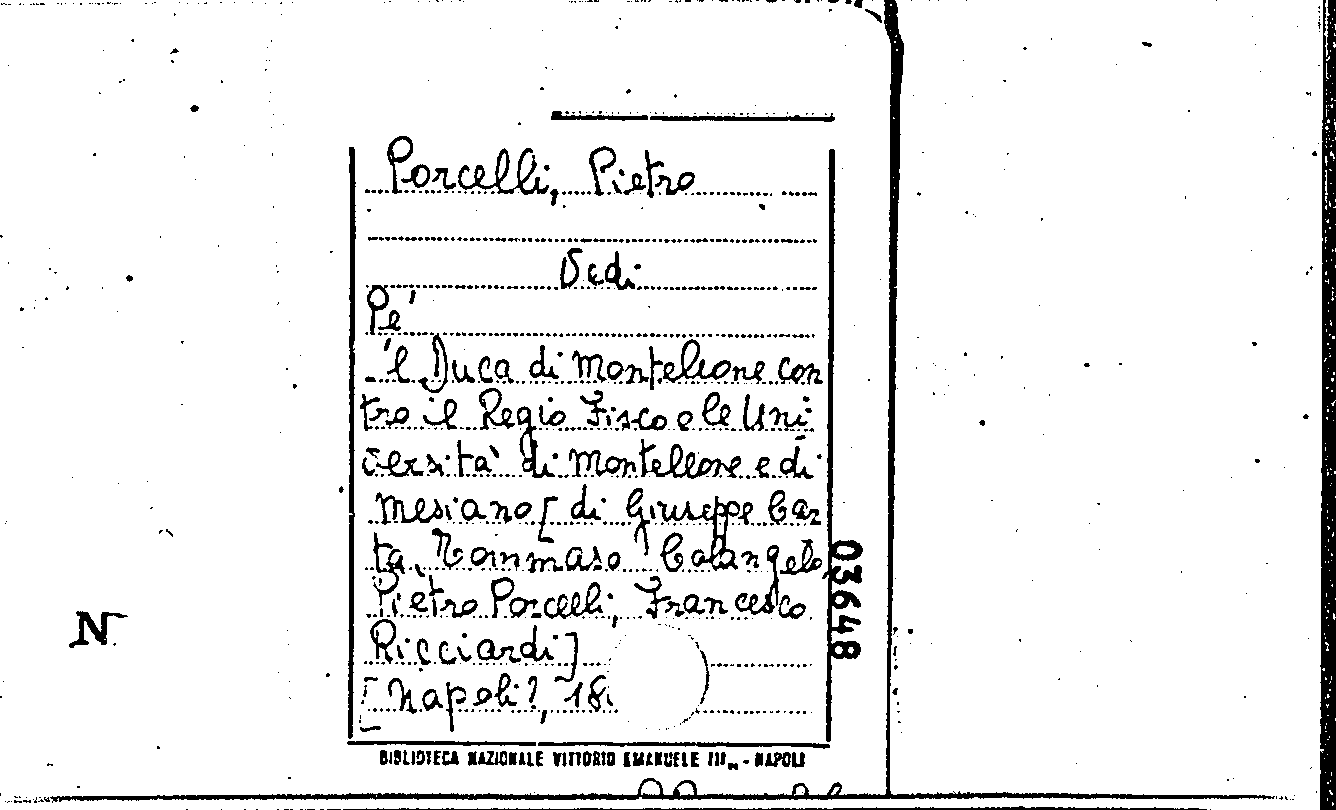 Porcelli, Pietro
Vedi
Pe'
'l Duca di Monteleone con
tro il Regio Fisco e le Uni
versità di Monteleone e di
Mesiano [di Giuseppe Car
ta, Tommaso Colangelo,
Pietro Porcelli, Francesco
Ricciardi]
[Napoli?, 18
03648
N
BIBLIOTECA NAZIONALE VITTORIO EMANUELE III - NAPOLI